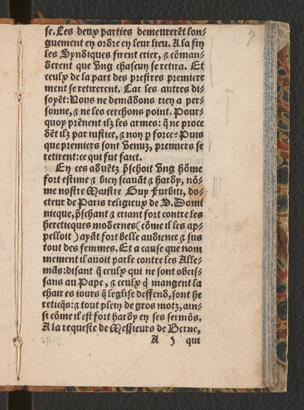 se. Les deux parties demeurerēt lon-
guement en ordre en leur lieu. A la fin
les Syndiques firent crier, & cōman-
derent que vng chascun se retira. Et
ceulx de la part des prestres premiere
ment se retirerent. Car les autres di-
soyēt: Nous ne demādons rien a per-
sonne, & ne les cerchons point. Pour-
quoy prēnent ilz les armes: q̄ ne proce
dēt ilz par iustice, & non p̄ force? Puis
que premiers sont venuz, premiers se
retirent: ce qui fut faict.
En ces aduētz p̄schoit vng hōme
fort estime & bien scauāt & hardy, nō-
me nostre Maistre Guy Furbiti, do-
cteur de Paris religieux de S. Domi
nicque, p̄schant & criant fort contre les
hereticques modernes (cōme il les ap-
pelloit) ayāt fort belle audience & sus
tout des femmes. Et a cause que nom
mement il auoit parle contre les Alle-
mās: disant q̄ ceulx qui ne sont obeis-
sans au Pape, & ceulx q̄ mangent la
chair es iours q̄ leglise deffend, sont he
reticq̄s: & tout plein de gros motz, ain-
si cōme il est fort hardy en ses sermōs.
A la requeste de Messieurs de Berne,
A j qui